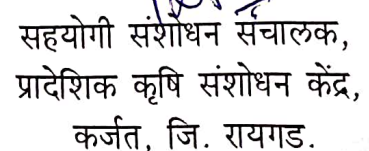 सहयोगी संशोधन संचालक,
प्रादेशिक कृषि संशोधन केंद्र,
कर्जत, जि. रायगड.